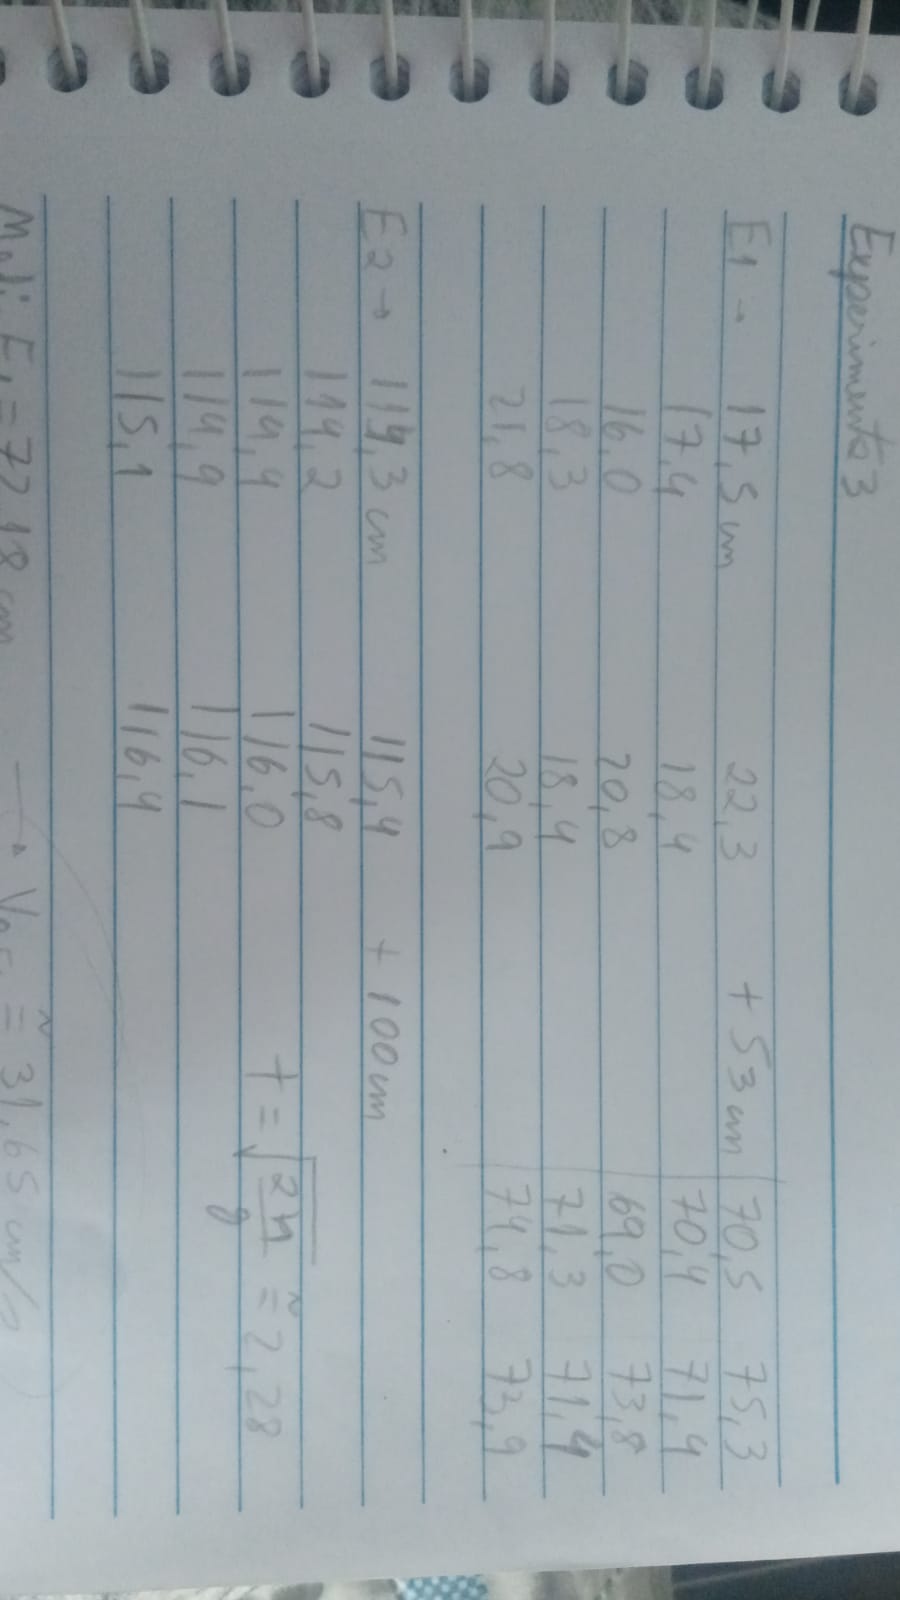 Experimento 3
E1 → 17,5 cm 22,3 + 53 cm 70,5 75,3
17,4 18,4 70,4 71,4
16,0 20,8 69,0 73,8
18,3 18,4 71,3 71,4
21,8 20,9 74,8 73,9
E2 → 114,3 cm 115,4 + 100 cm
114,2 115,8
114,4 116,0 t = √2h/g ≅ 2,28
114,9 116,1
115,1 116,4
E1 = 72,18 cm → ≅ 31,65 cm/s